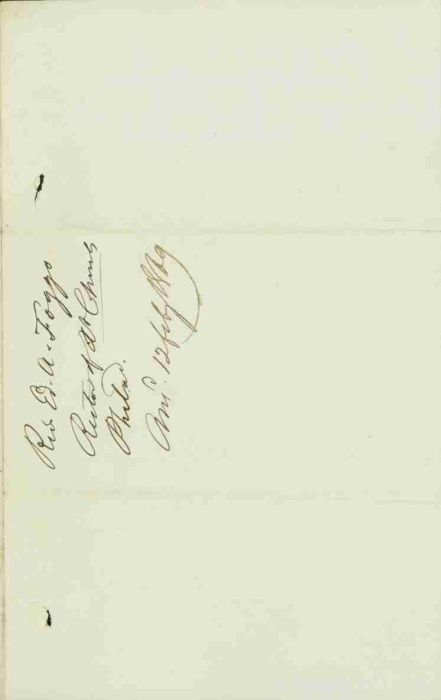 Rev Ed. A. Foggo
Rector of Xt Church
Philad.
Ans. 12 feby 1869